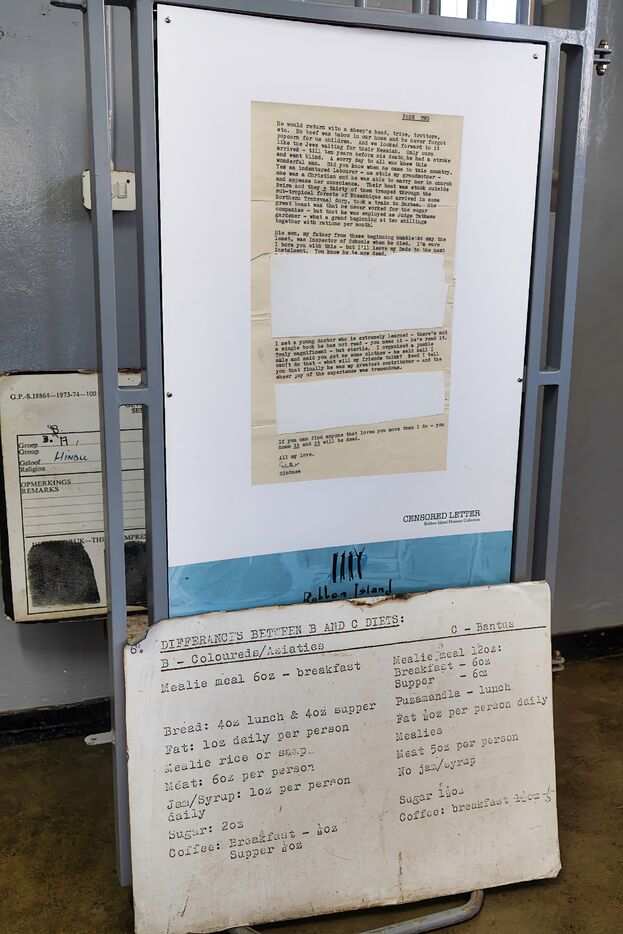 PAGE TWO
He would return with a sheep's head, tripe, trotters,
etc. No beef was taboo in our home and he never forgot
popcorn for us children. And we looked forward to it
like the Jews waiting for their Messiah. Only ours
arrived - till ten years before his death he had a stroke
and went blind. A sorry day to all who knew this
wonderful man. Did you know when he came to this country.
Yes an indentured labourer - he stole my grandmother -
she was a Christian and he was able to marry her in church
and appease her conscience. Their boat was stuck outside
Beira and they & thirty of them tramped through the
sub-tropical forests of Mosambique and arrived in some
Northern Transvaal dorp, took a train to Durban. His
great boast was that he never worked for the sugar
companies - but that he was employed as Judge Tathams
gardener - what a grand beginning at ten shillings
together with rations per month.
His son, my father from these beginning humble to say the
least, was Inspector of Schools when he died. I'm sure
I bore you with this - but I'll leave my Dads to the next
instalment. You know he is now dead.
I met a young doctor who is extremely learned - there's not
a single book he has not read - you name it - he's read it.
Truly magnificent - but sterile. I organised a jumble
sale and said you get me some clothes - he said hell I
can't do that - what will my friends think? Need I tell
you that finally he was my greatest contributor - and the
sheer joy of the experience was tremendous.
If you can find anyone that loves you more than I do - you
name it and it will be dead.
All my love,
CENSORED LETTER
Robben Island Museum Collection
Robben Island
G.P.-S.18864-1973-74-100
Groep
Group
B.
Geloof
Religion
HINDU
OPMERKINGS
REMARKS
DIFFERANCES BETWEEN B AND C DIETS:
B - Coloureds/Asiaties
Mealie meal 6oz - breakfast
Bread: 4oz lunch & 4oz supper
Fat: 1oz daily per person
Mealie rice or samp
Meat: 6oz per person
Jam/Syrup: 1oz per person
daily
Sugar: 2oz
Coffee: Breakfast - ½oz
Supper ½oz
C - Bantus
Mealie meal 12oz:
Breakfast - 6oz
Supper - 6oz
Puzamandla - lunch
Fat ½oz per person daily
Mealies
Meat 5oz per person
No jam/syrup
Sugar 1½oz
Coffee: breakfast